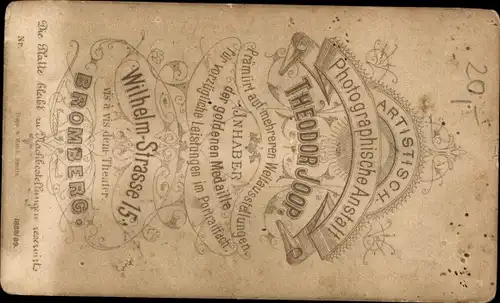 ARTISTISCH
Photographische Anstalt
THEODOR JOOP.
Prämiirt auf mehreren Weltausstellungen.
JNHABER
der goldenen Medaille
für vorzügliche Leistungen im Portraitfach.
Wilhelm-Strasse 15.
vis à vis dem Theater
BROMBERG.
Die Platte bleibt zu Nachbestellungen reservirt.
Nr.
1889/90.
20/